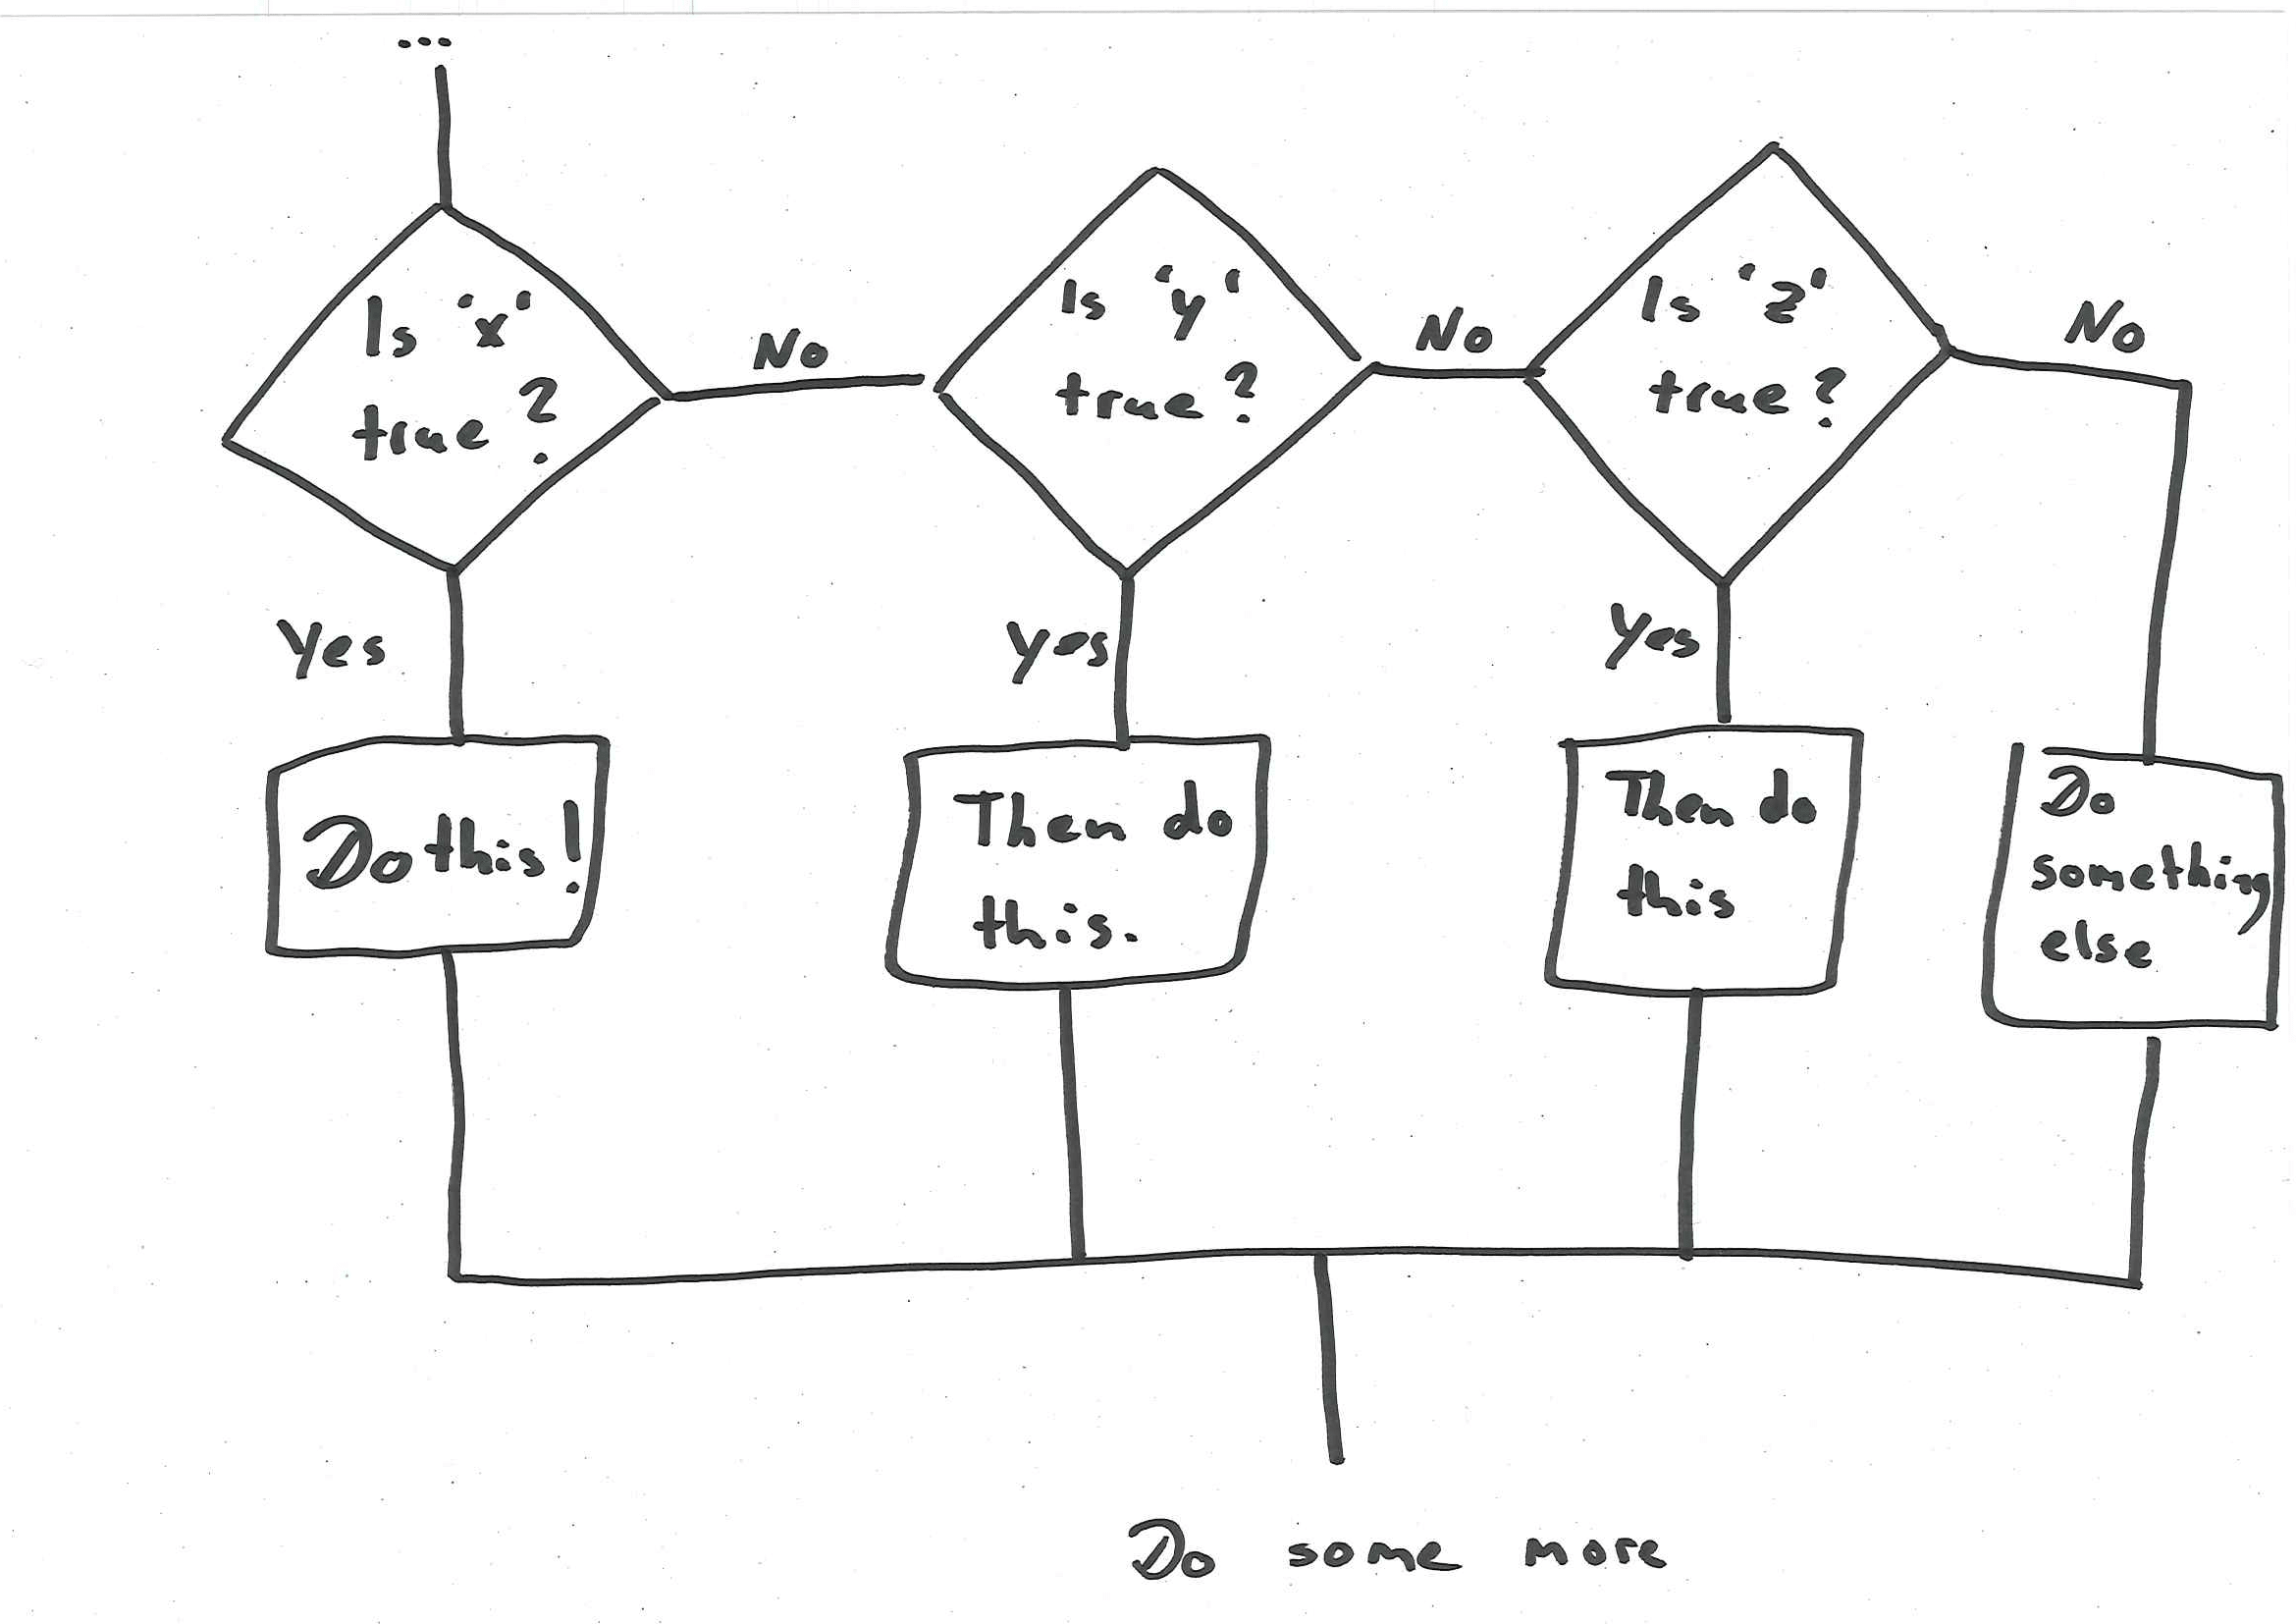 ...
Is 'x'
true?
No
Is 'y'
true?
No
Is 'z'
true?
No
Yes
Yes
Yes
Do this!
Then do
this.
Then do
this
Do
something
else
Do some more